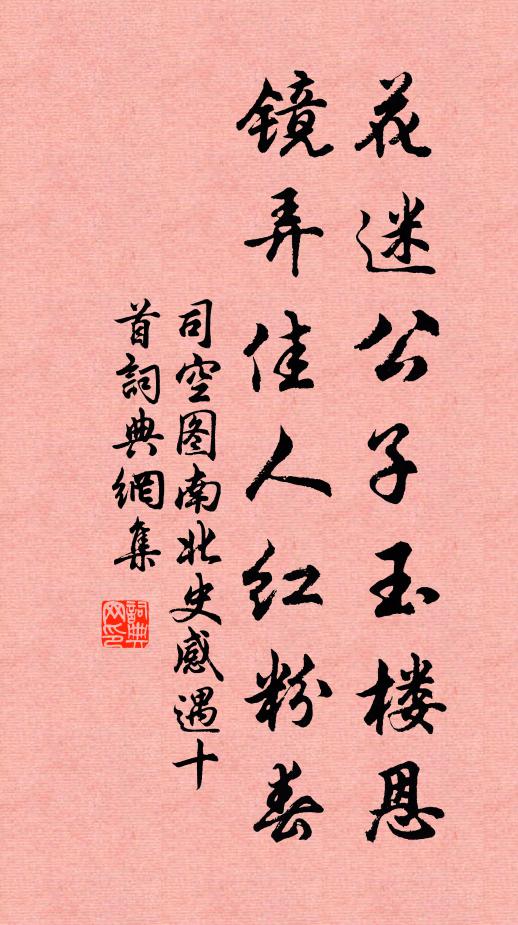 花迷公子玉楼恩
镜弄佳人红粉春
司空图南北史感遇十
首詞典網集
詞典
网印